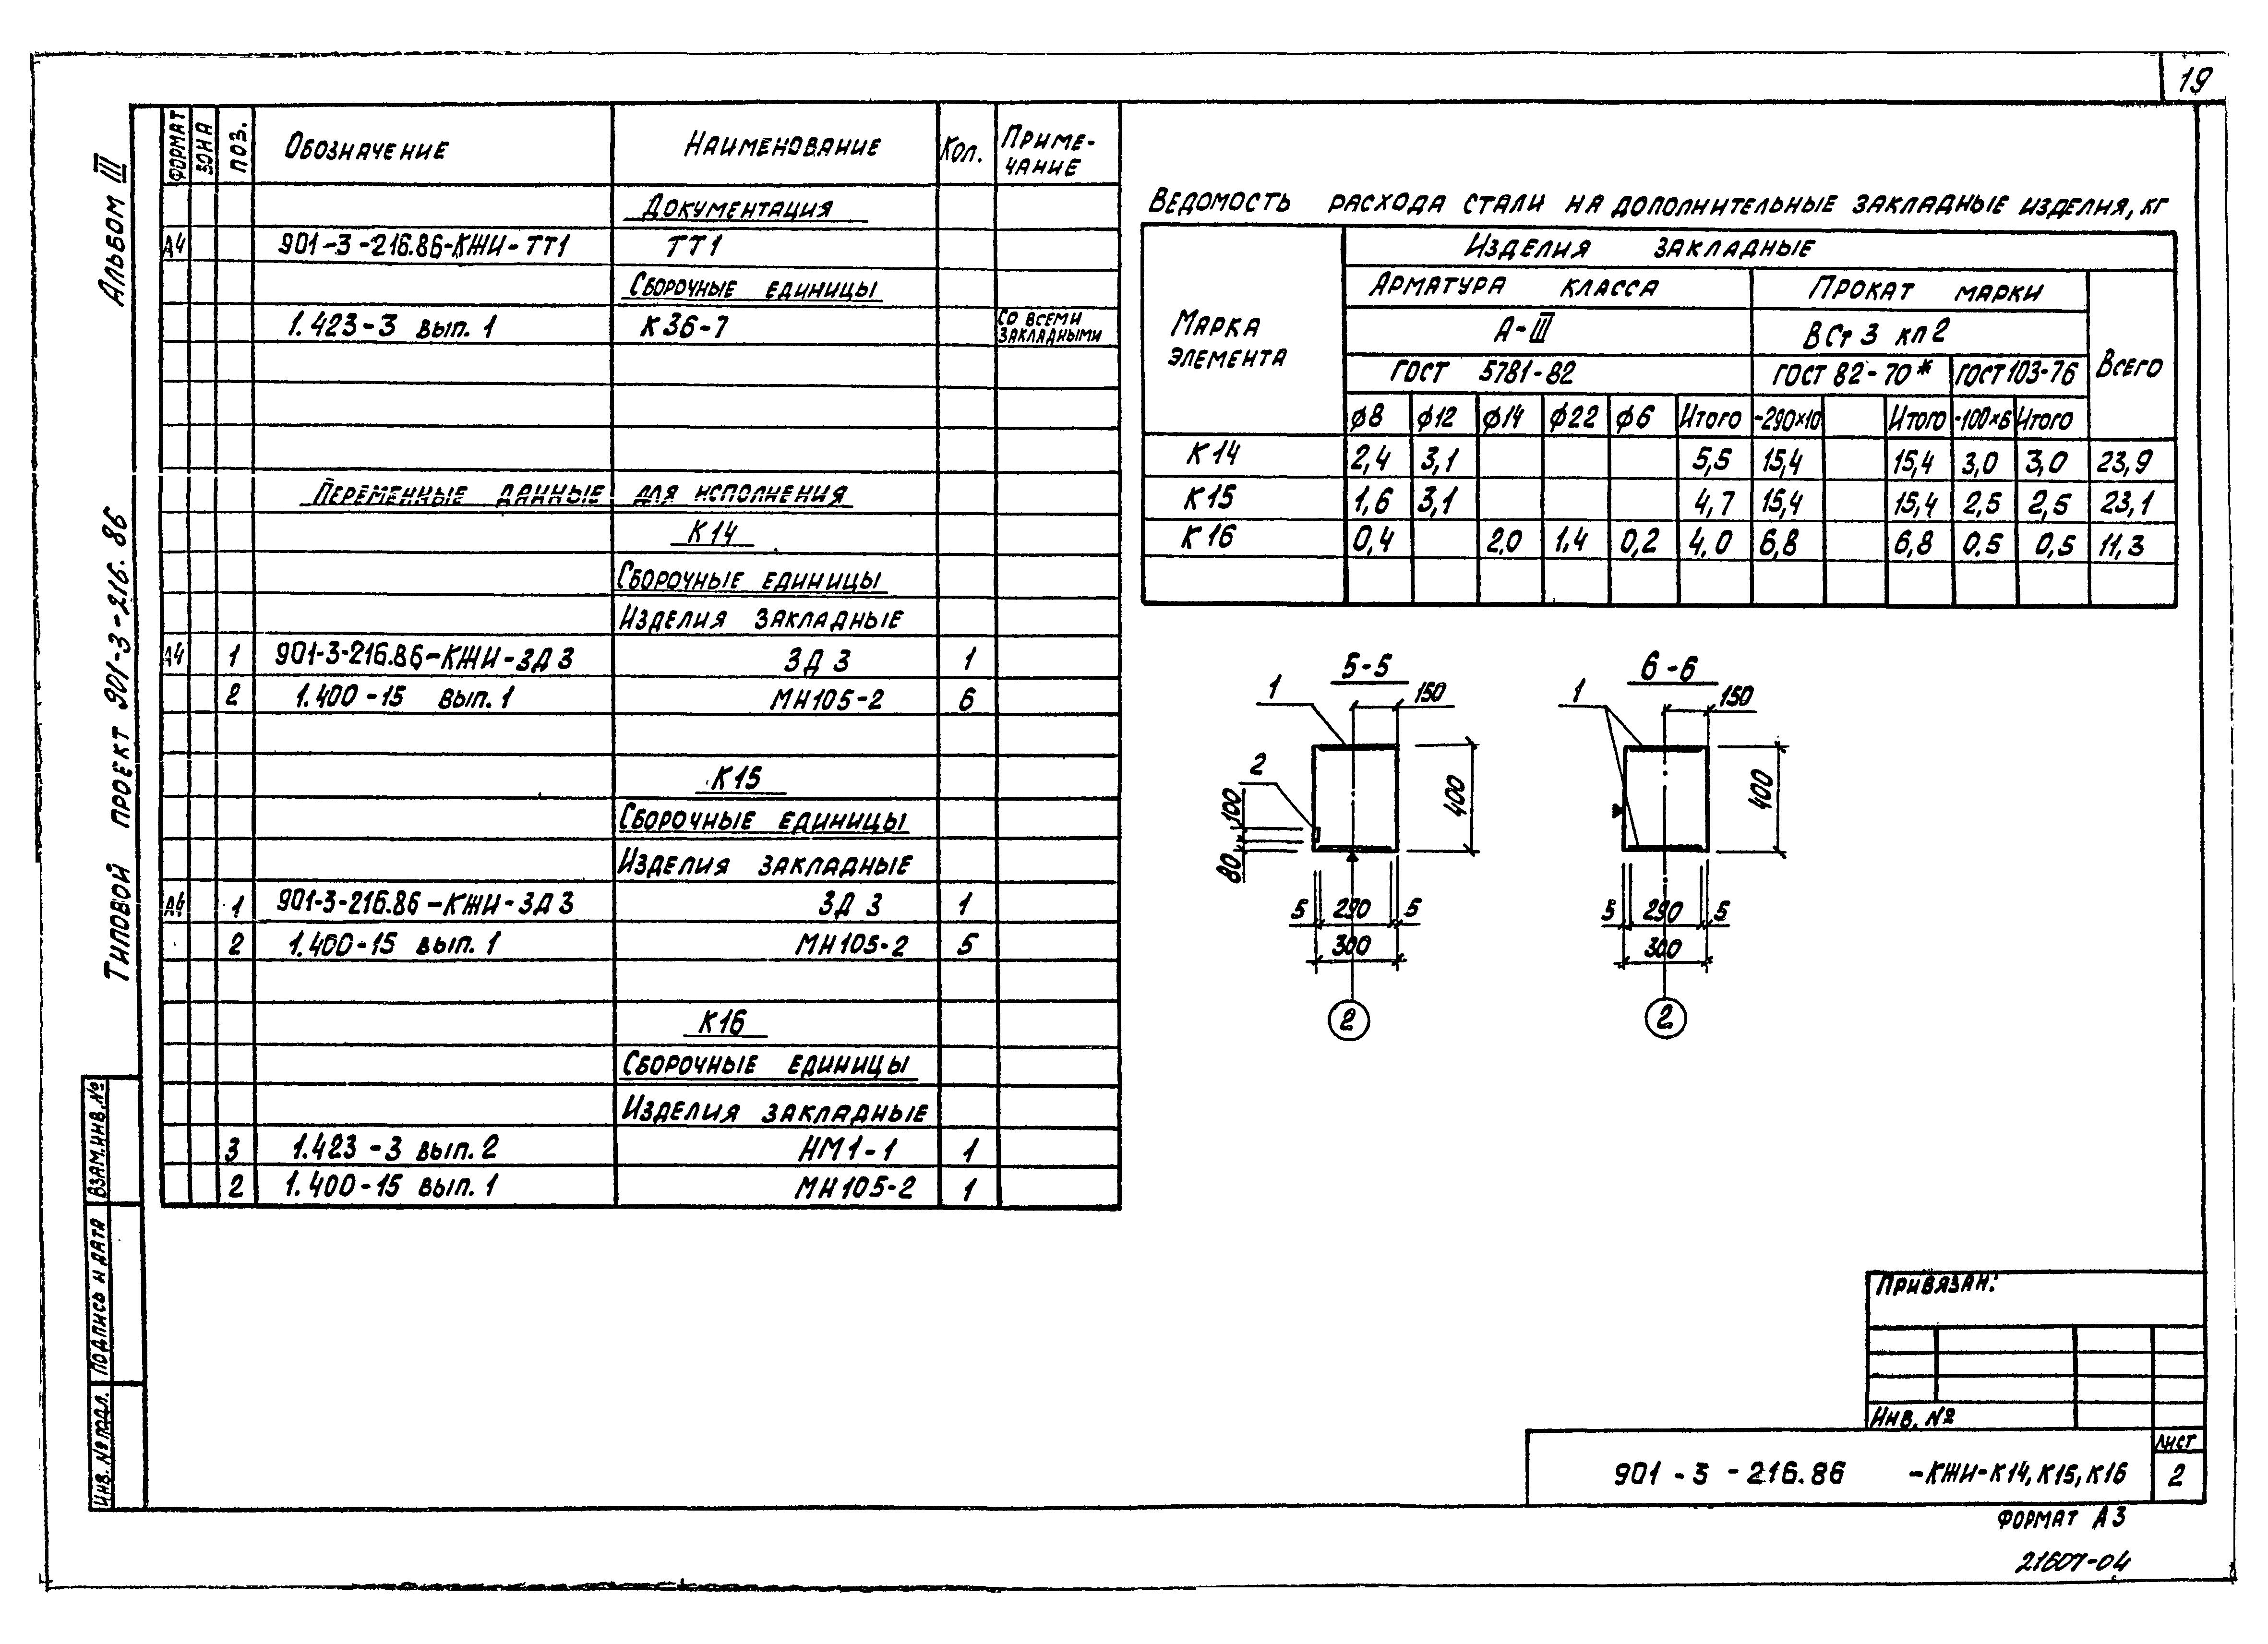 19
Альбом III
Типовой проект 901-3-216.86
Формат Зона Поз. Обозначение Наименование Кол. Приме-
чание
Документация
А4 901-3-216.86-КЖИ-ТТ1 ТТ1
Сборочные единицы
1.423-3 вып. 1 К36-7 Со всеми
закладными
Переменные данные для исполнения
К14
Сборочные единицы
Изделия закладные
А4 1 901-3-216.86-КЖИ-ЗД3 ЗД3 1
2 1.400-15 вып. 1 МН105-2 6
К15
Сборочные единицы
Изделия закладные
А4 1 901-3-216.86-КЖИ-ЗД3 ЗД3 1
2 1.400-15 вып. 1 МН105-2 5
К16
Сборочные единицы
Изделия закладные
3 1.423-3 вып. 2 НМ1-1 1
2 1.400-15 вып. 1 МН105-2 1
Ведомость расхода стали на дополнительные закладные изделия, кг
Марка
элемента
Изделия закладные
Арматура класса Прокат марки
А-III ВСт3 кп2
Всего
ГОСТ 5781-82 ГОСТ 82-70* ГОСТ 103-76
ϕ8 ϕ12 ϕ14 ϕ22 ϕ6 Итого -290×10 Итого -100×6 Итого
К14 2,4 3,1 5,5 15,4 15,4 3,0 3,0 23,9
К15 1,6 3,1 4,7 15,4 15,4 2,5 2,5 23,1
К16 0,4 2,0 1,4 0,2 4,0 6,8 6,8 0,5 0,5 11,3
5-5
1 150
2
100
80
400
5 290 5
300
2
6-6
1 150
400
5 290 5
300
2
Взам.инв.№
Подпись и дата
Инв.№подл.
Привязан:
Инв. №
901-3-216.86 -КЖИ-К14, К15, К16
Лист
2
Формат А3
21607-04